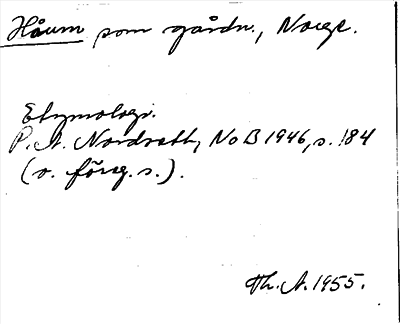 Håum som gårdn., Norge.
Etymologi.
P. A. Nordseth, NoB 1946, s. 184
(o. föreg. s.).
Th. A. 1955.